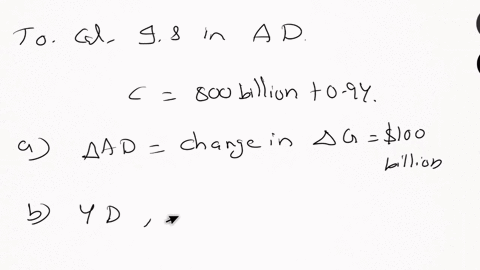 To. Cal. g.s in AD.
C = 800 billion + 0.9Y.
a) ΔAD = change in ΔG = $100
billion
b) YD,